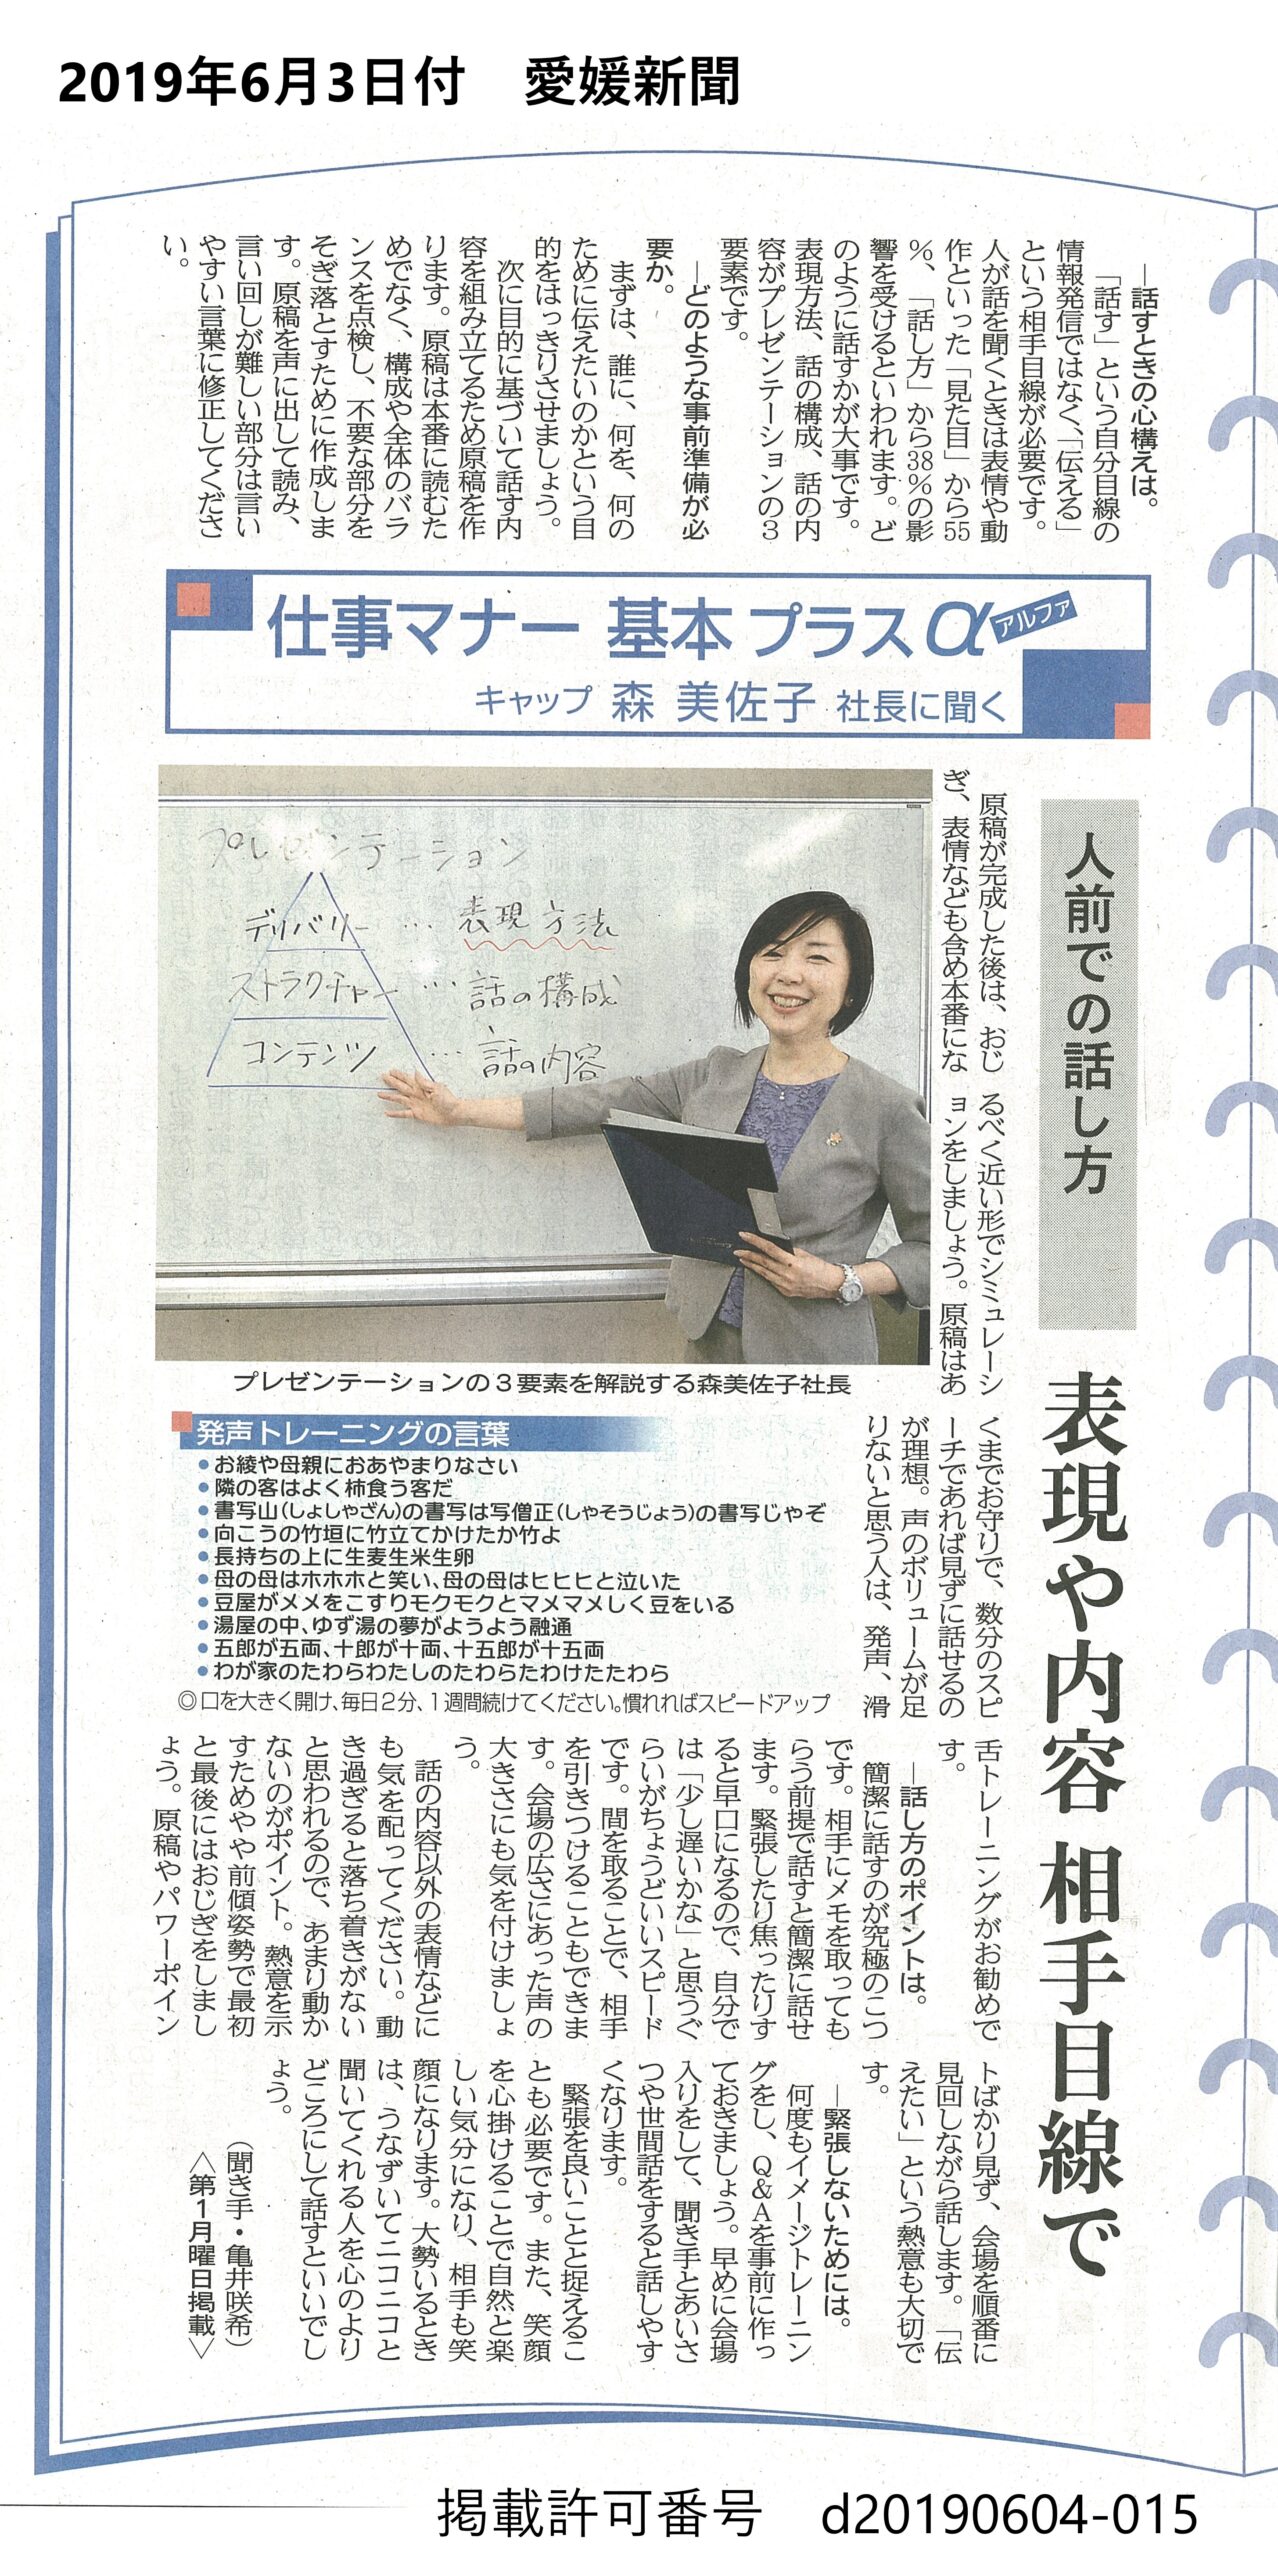 2019年6月3日付　愛媛新聞
―話すときの心構えは。
「話す」という自分目線の
情報発信ではなく、「伝える」
という相手目線が必要です。
人が話を聞くときは表情や動
作といった「見た目」から55
%、「話し方」から38%の影
響を受けるといわれます。ど
のように話すかが大事です。
表現方法、話の構成、話の内
容がプレゼンテーションの3
要素です。
―どのような事前準備が必
要か。
まずは、誰に、何を、何の
ために伝えたいのかという目
的をはっきりさせましょう。
次に目的に基づいて話す内
容を組み立てるため原稿を作
ります。原稿は本番に読むた
めでなく、構成や全体のバラ
ンスを点検し、不要な部分を
そぎ落とすために作成しま
す。原稿を声に出して読み、
言い回しが難しい部分は言い
やすい言葉に修正してくださ
い。
仕事マナー 基本 プラスα アルファ
キャップ 森 美佐子 社長に聞く
人前での話し方
表現や内容 相手目線で
原稿が完成した後は、おじ
ぎ、表情なども含め本番にな
るべく近い形でシミュレーシ
ョンをしましょう。原稿はあ
くまでお守りで、数分のスピ
ーチであれば見ずに話せるの
が理想。声のボリュームが足
りないと思う人は、発声、滑
舌トレーニングがお勧めで
す。
プレゼンテーション
デリバリー … 表現方法
ストラクチャー … 話の構成
コンテンツ … 話の内容
プレゼンテーションの3要素を解説する森美佐子社長
発声トレーニングの言葉
●お綾や母親におあやまりなさい
●隣の客はよく柿食う客だ
●書写山(しょしゃざん)の書写は写僧正(しゃそうじょう)の書写じゃぞ
●向こうの竹垣に竹立てかけたか竹よ
●長持ちの上に生麦生米生卵
●母の母はホホホと笑い、母の母はヒヒヒと泣いた
●豆屋がメメをこすりモクモクとマメマメしく豆をいる
●湯屋の中、ゆず湯の夢がようよう融通
●五郎が五両、十郎が十両、十五郎が十五両
●わが家のたわらわたしのたわらたわけたたわら
◎口を大きく開け、毎日2分、1週間続けてください。慣れればスピードアップ
―話し方のポイントは。
簡潔に話すのが究極のこつ
です。相手にメモを取っても
らう前提で話すと簡潔に話せ
ます。緊張したり焦ったりす
ると早口になるので、自分で
は「少し遅いかな」と思うぐ
らいがちょうどいいスピード
です。間を取ることで、相手
を引きつけることもできま
す。会場の広さにあった声の
大きさにも気を付けましょ
う。
話の内容以外の表情などに
も気を配ってください。動
き過ぎると落ち着きがない
と思われるので、あまり動か
ないのがポイント。熱意を示
すためやや前傾姿勢で最初
と最後にはおじぎをしまし
ょう。原稿やパワーポイン
トばかり見ず、会場を順番に
見回しながら話します。「伝
えたい」という熱意も大切で
す。
―緊張しないためには。
何度もイメージトレーニン
グをし、Q&Aを事前に作っ
ておきましょう。早めに会場
入りをして、聞き手とあいさ
つや世間話をすると話しやす
くなります。
緊張を良いことと捉えるこ
とも必要です。また、笑顔
を心掛けることで自然と楽
しい気分になり、相手も笑
顔になります。大勢いるとき
は、うなずいてニコニコと
聞いてくれる人を心のより
どころにして話すといいでし
ょう。
(聞き手・亀井咲希)
△第1月曜日掲載▽
掲載許可番号　d20190604-015